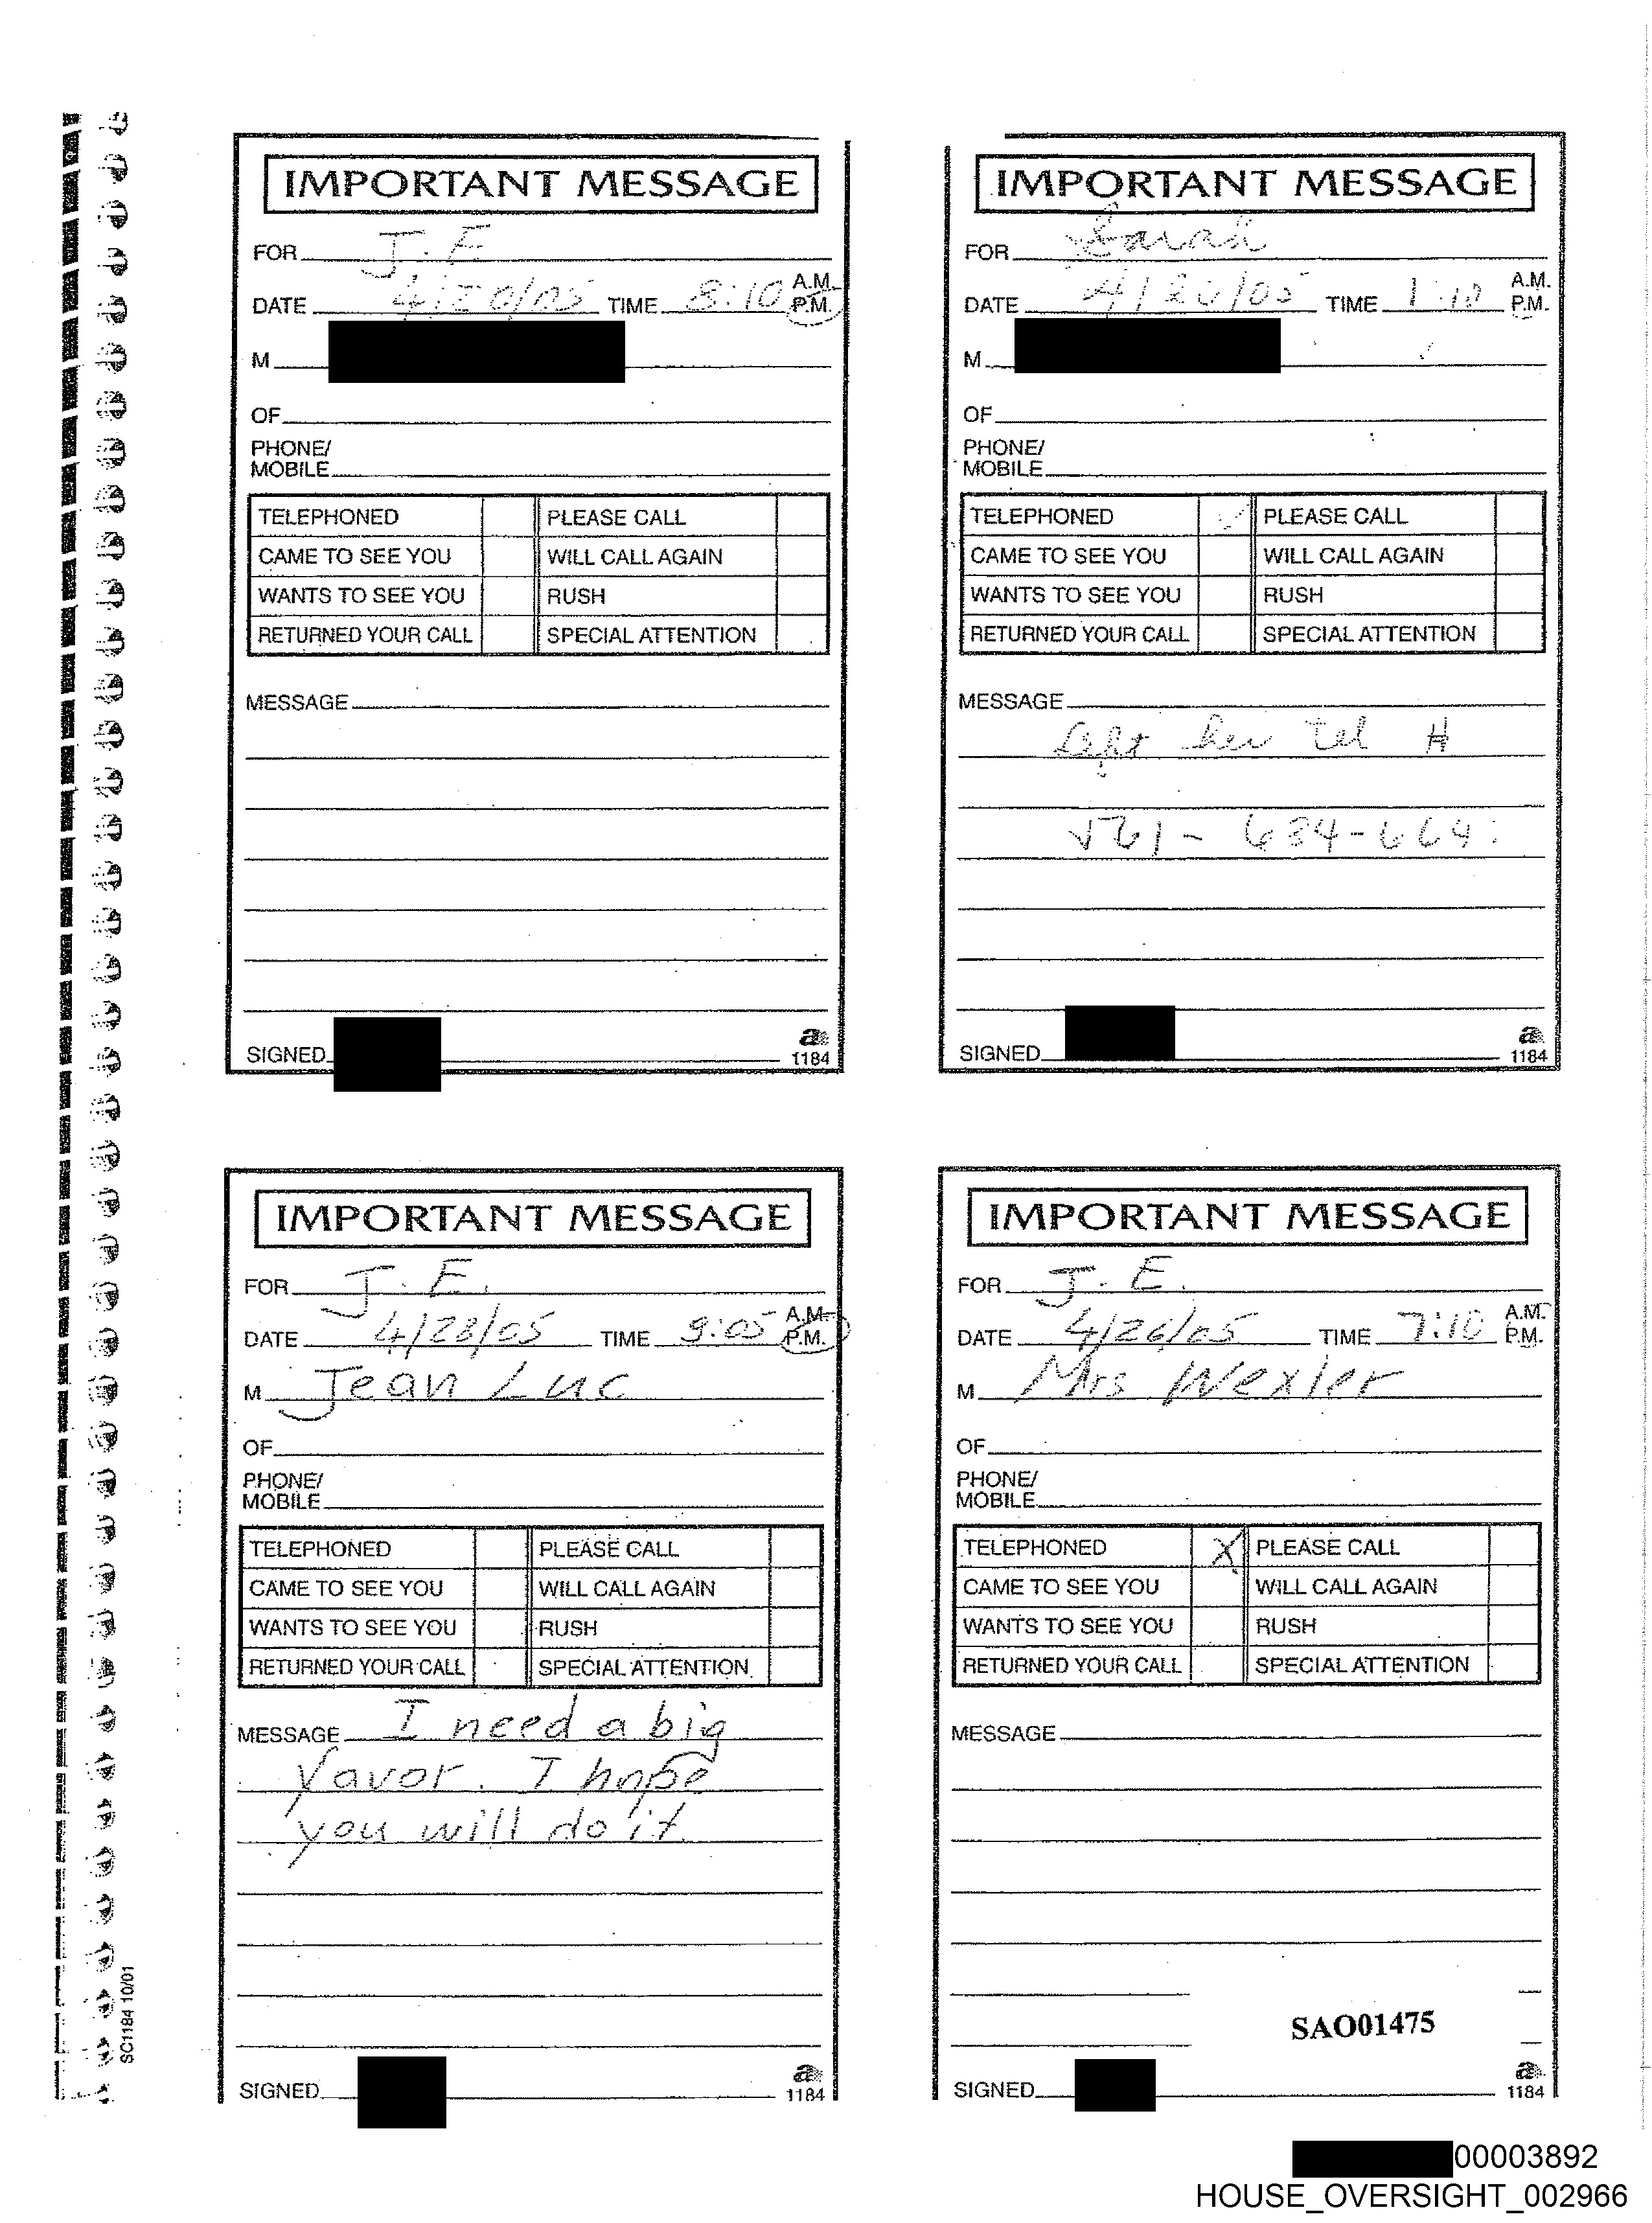 IMPORTANT MESSAGE
FOR J. E
DATE 4/20/05 TIME 8:10 A.M. P.M.
M
OF
PHONE/
MOBILE
TELEPHONED PLEASE CALL
CAME TO SEE YOU WILL CALL AGAIN
WANTS TO SEE YOU RUSH
RETURNED YOUR CALL SPECIAL ATTENTION
MESSAGE
SIGNED
a
1184
IMPORTANT MESSAGE
FOR Sarah
DATE 4/26/05 TIME 1:10 A.M. P.M.
M
OF
PHONE/
MOBILE
TELEPHONED ✓ PLEASE CALL
CAME TO SEE YOU WILL CALL AGAIN
WANTS TO SEE YOU RUSH
RETURNED YOUR CALL SPECIAL ATTENTION
MESSAGE
Left her tel #
561-634-664
SIGNED
a
1184
IMPORTANT MESSAGE
FOR J. E.
DATE 4/28/05 TIME 9:05 A.M. P.M.
M Jean Luc
OF
PHONE/
MOBILE
TELEPHONED PLEASE CALL
CAME TO SEE YOU WILL CALL AGAIN
WANTS TO SEE YOU RUSH
RETURNED YOUR CALL SPECIAL ATTENTION
MESSAGE I need a big
favor. I hope
you will do it.
SIGNED
a
1184
IMPORTANT MESSAGE
FOR J. E.
DATE 4/26/05 TIME 7:10 A.M. P.M.
M Mrs Wexler
OF
PHONE/
MOBILE
TELEPHONED X PLEASE CALL
CAME TO SEE YOU WILL CALL AGAIN
WANTS TO SEE YOU RUSH
RETURNED YOUR CALL SPECIAL ATTENTION
MESSAGE
SAO01475
SIGNED
a
1184
SC1184 10/01
00003892
HOUSE_OVERSIGHT_002966